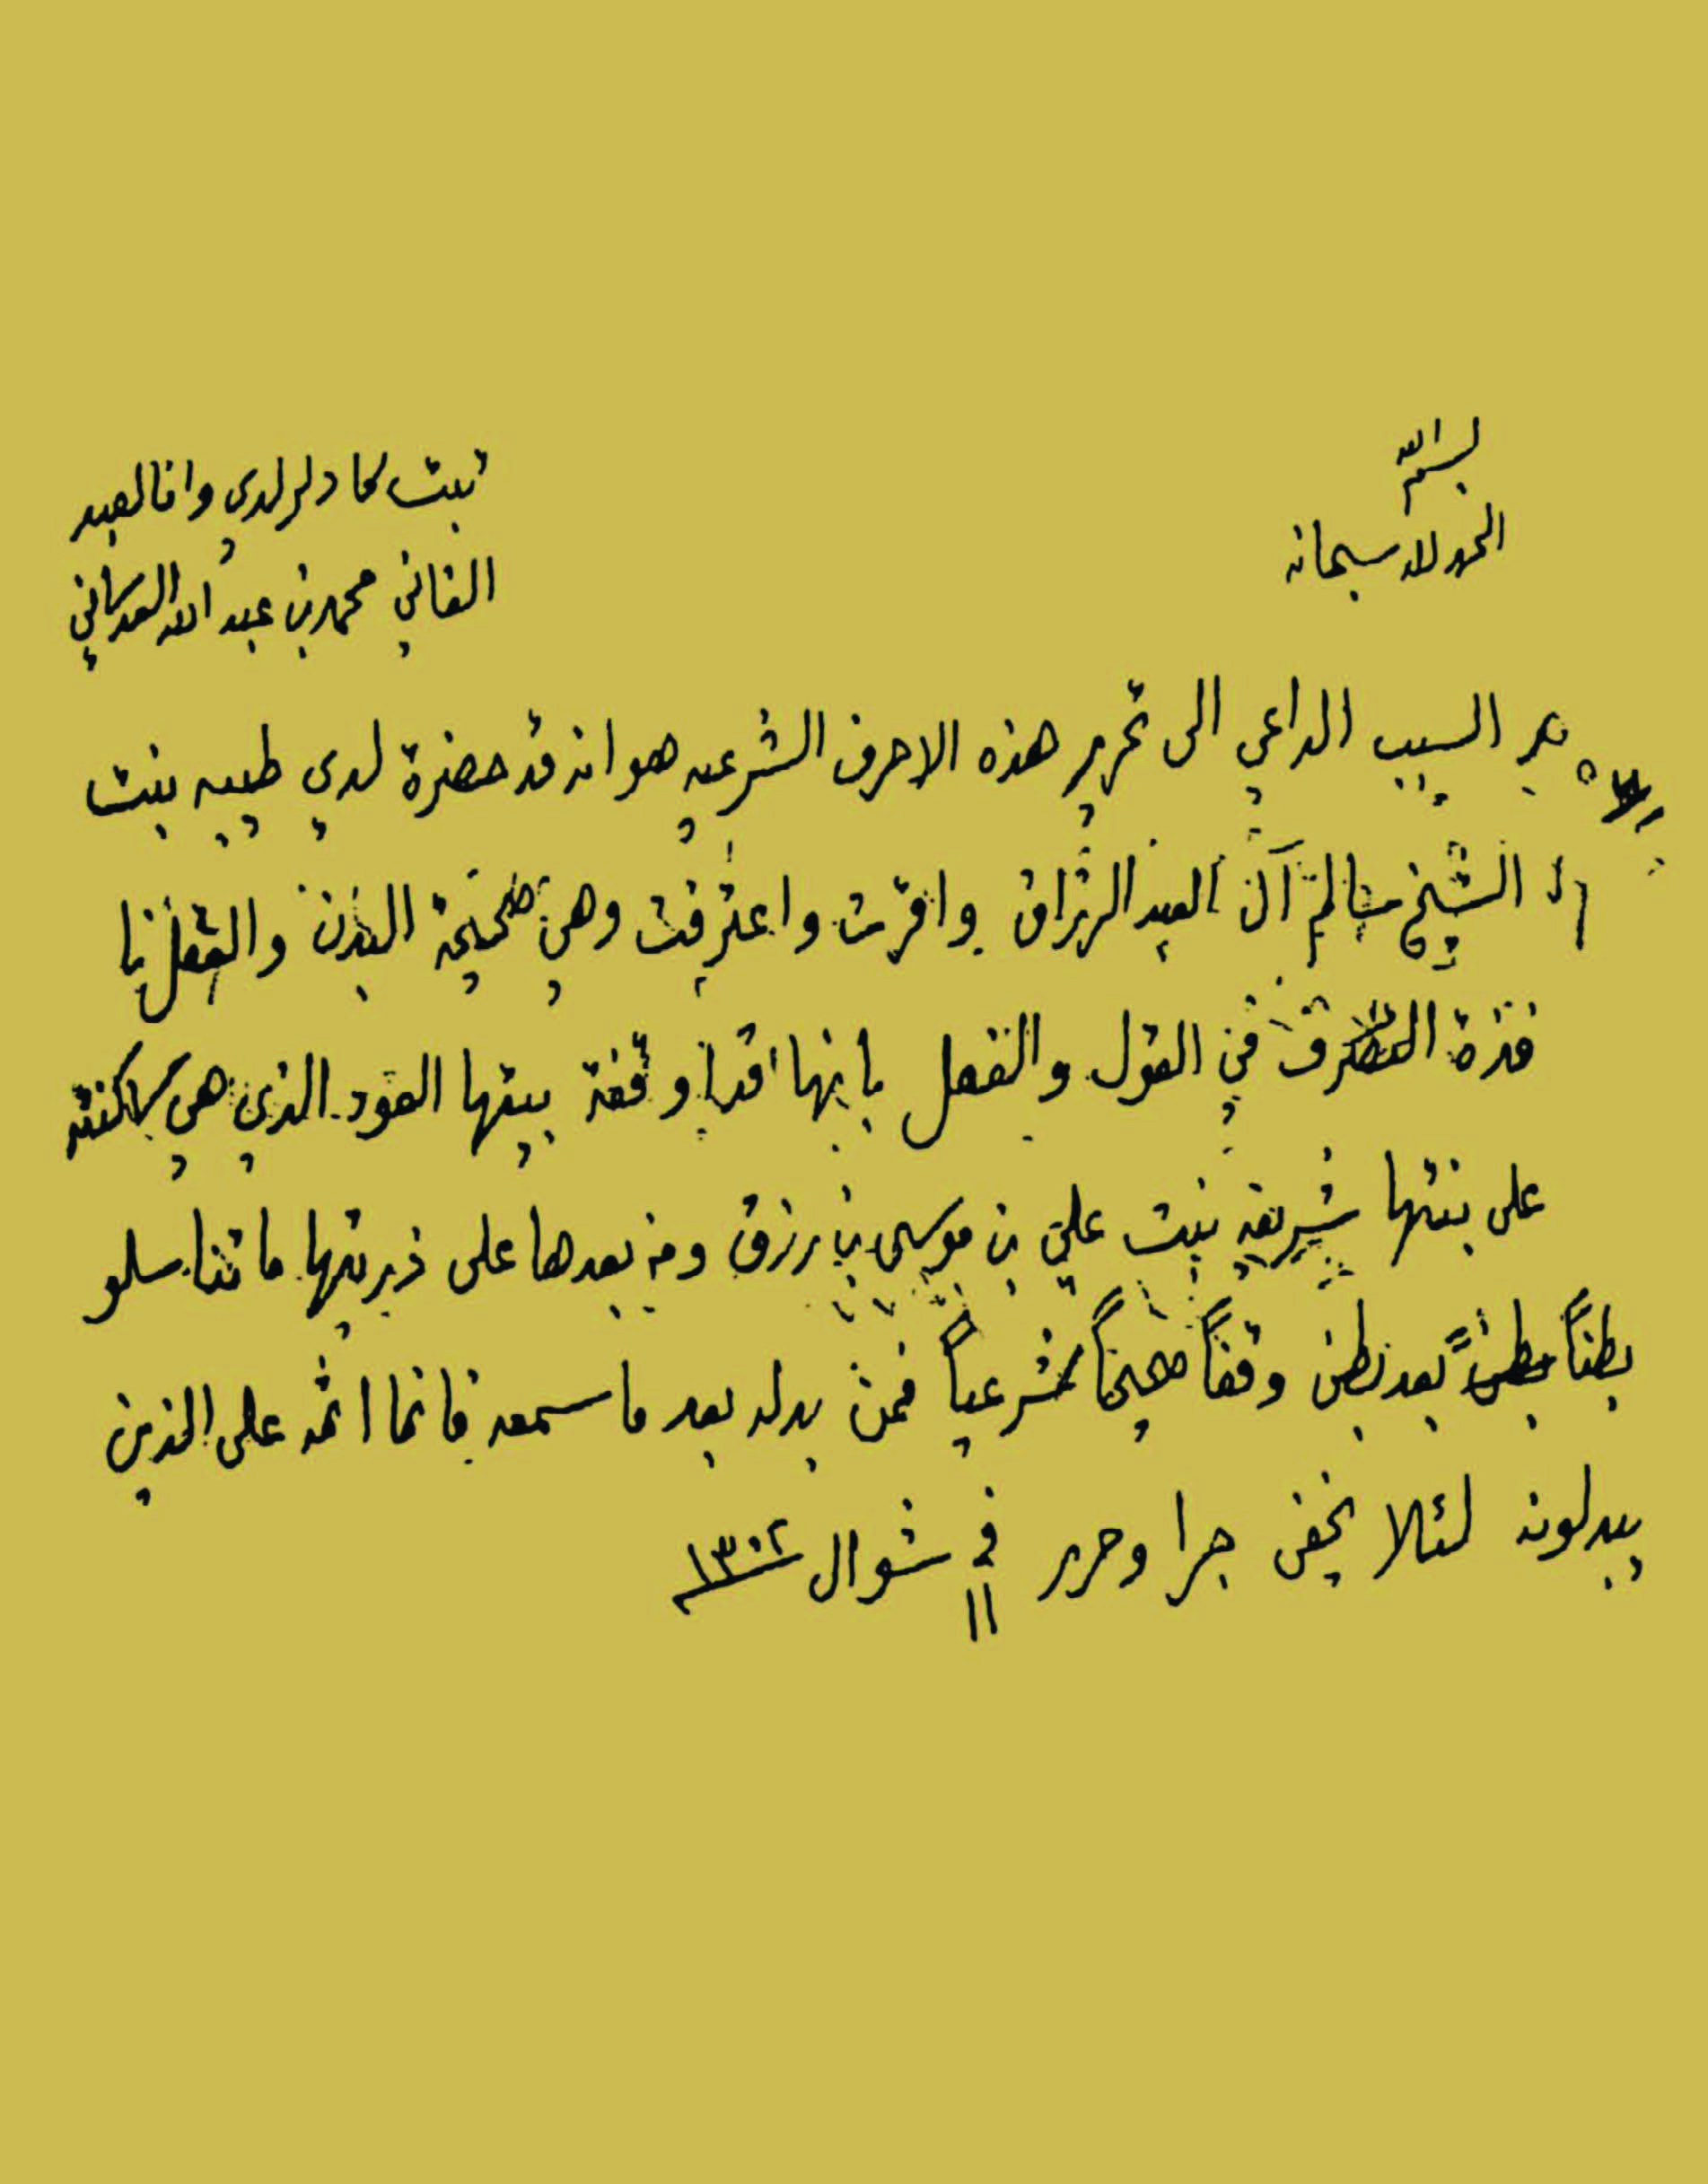 بسم الله
الحمد لله سبحانه
ثبت كما ذكر لدي وانا العبد
الفاني محمد بن عبد الله
السبب الداعي الى تحرير هذه الاحرف الشرعيه هو انه قد حضرة لدي طيبه بنت
الشيخ سالم آل عبد الرزاق واقرت واعترفت وهي صحيحة البدن والعقل نا
فذة التصرف في القول والفعل بانها قد اوقفة بيتها العود الذي هي ساكنته
على بنتها شريفه بنت علي بن موسى بن رزق ومن بعدها على ذريتها ما تناسلو
بطناً بعد بطن وقفاً صحيحاً شرعياً فمن بدله بعد ما سمعه فانما اثمه على الذين
يبدلونه لئلا يخفى جرا وحرر في ١١ شوال ١٣٠٢